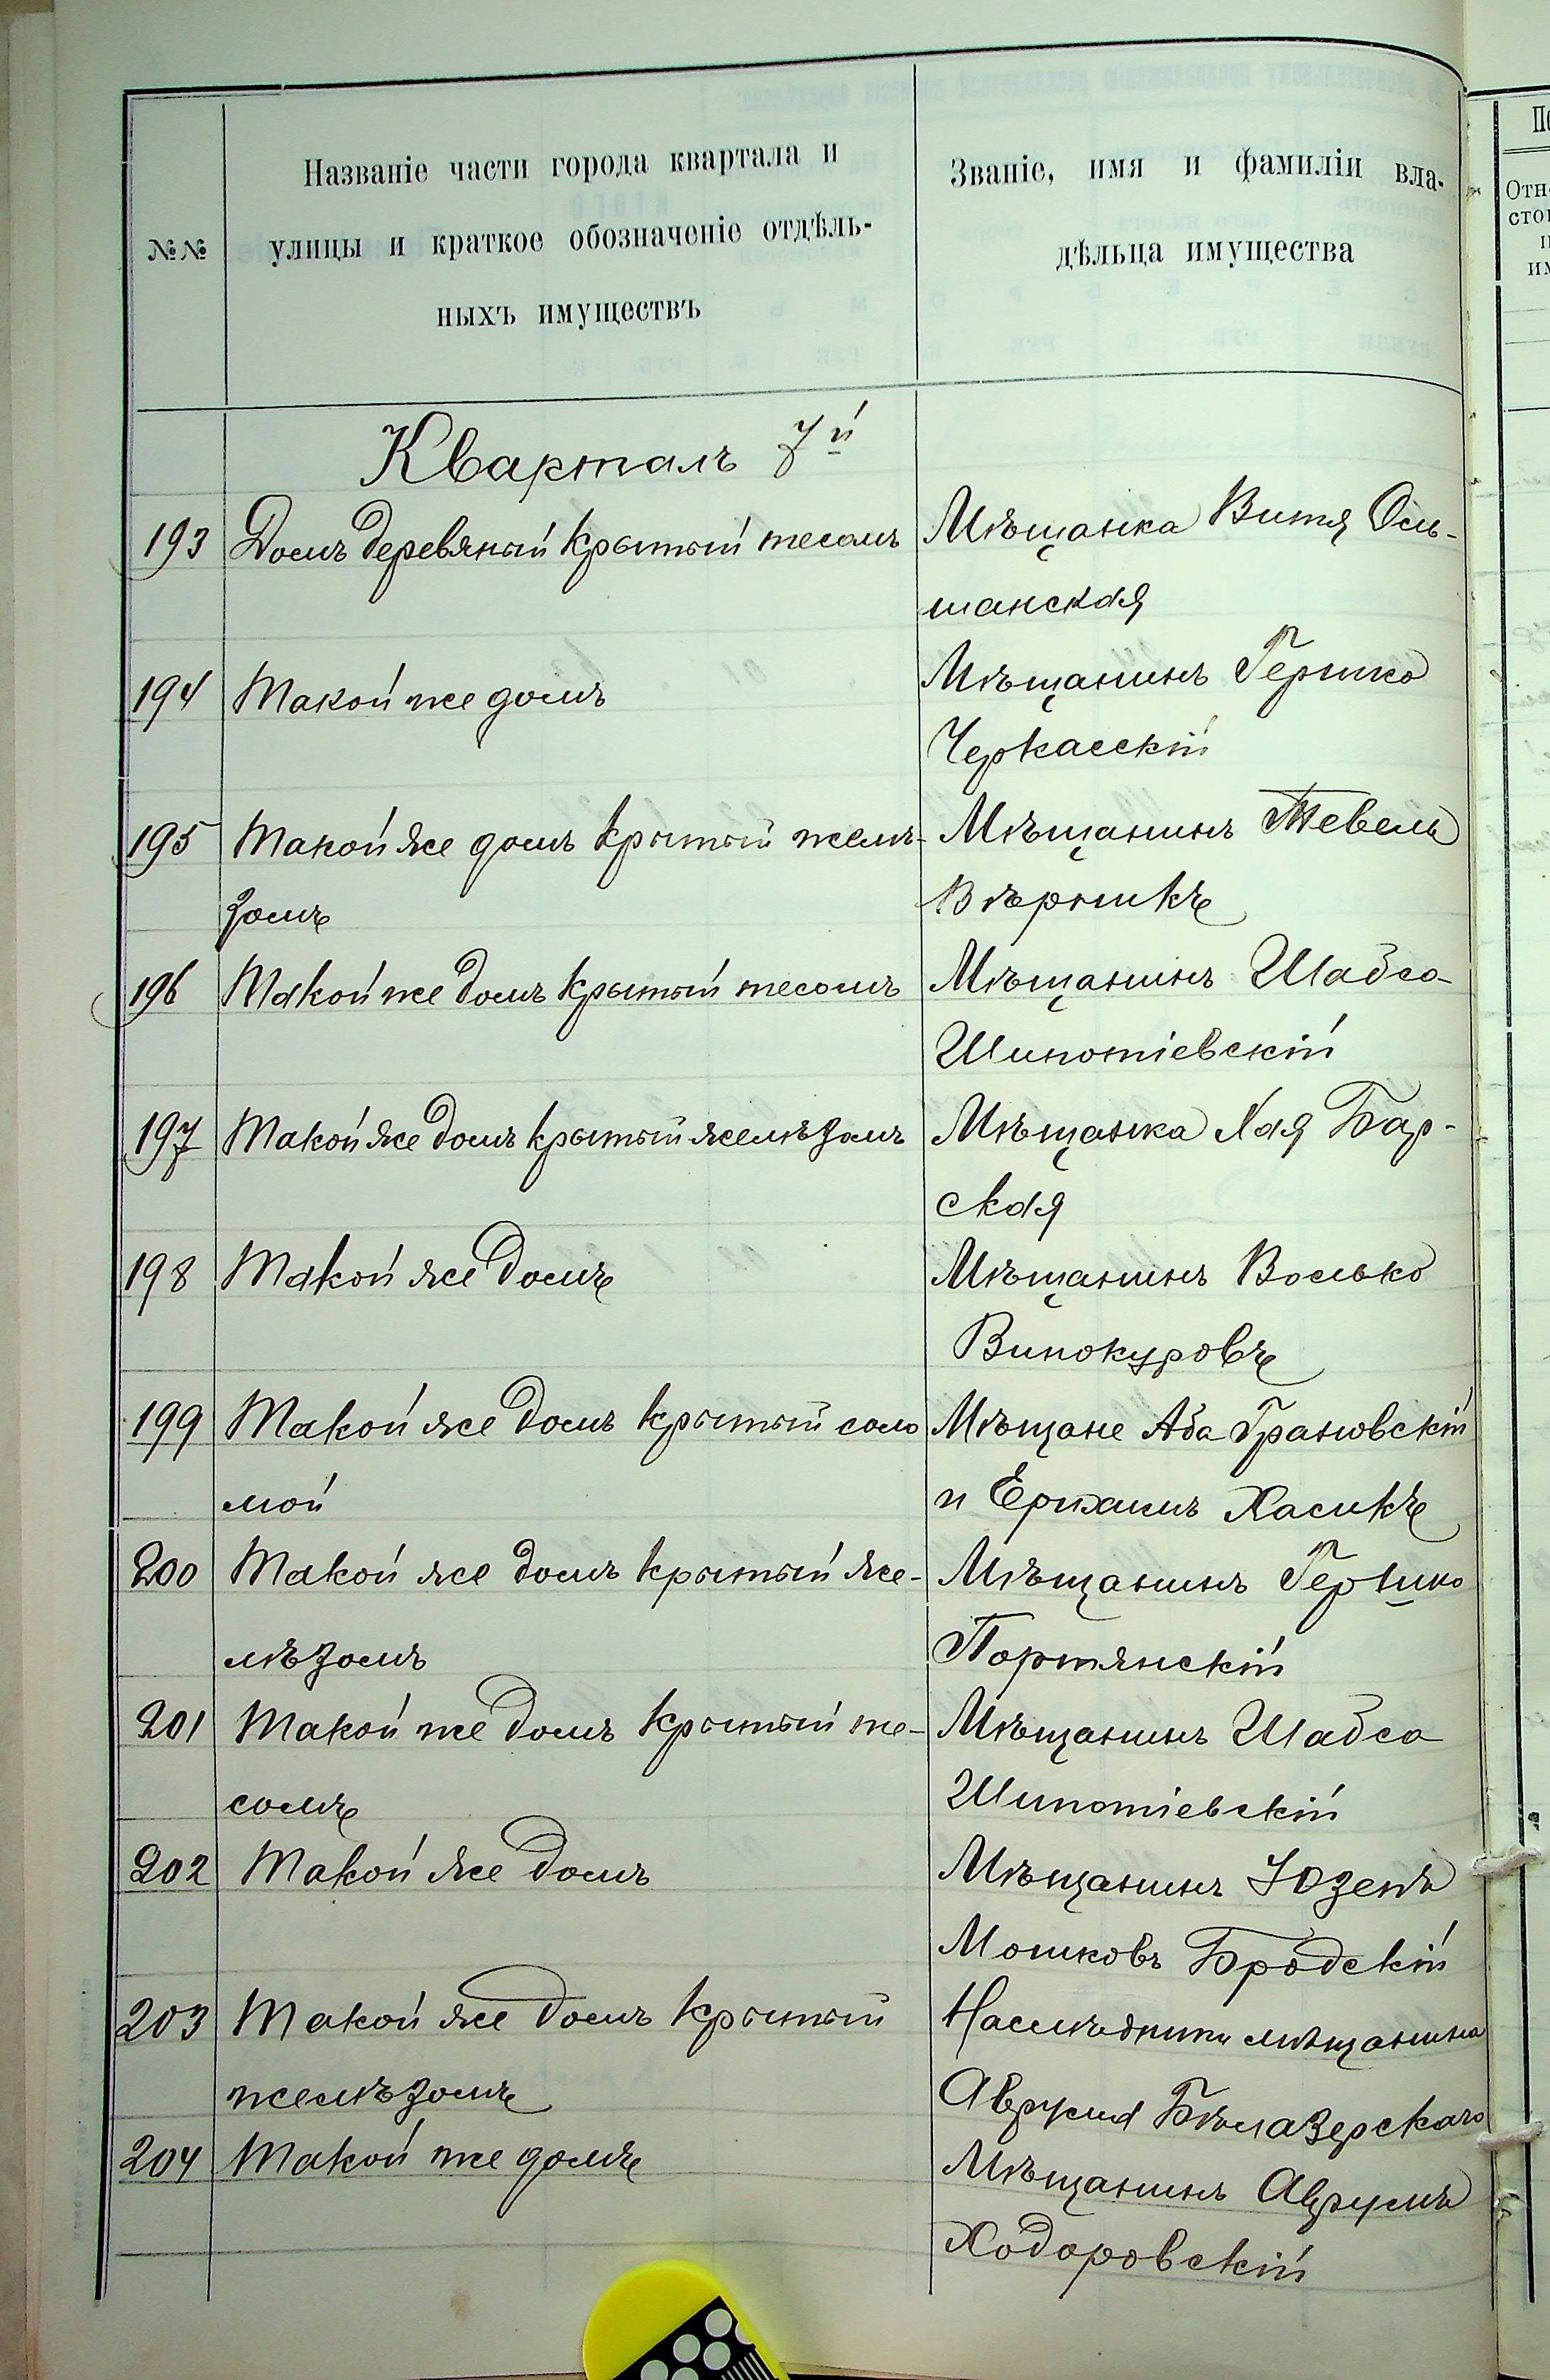 №№
Названіе части города квартала и
улицы и краткое обозначеніе отдѣль-
ныхъ имуществъ
Званіе, имя и фамиліи вла-
дѣльца имущества
Кварталъ 7й
193 Домъ деревяный крытый тесомъ Мѣщанка Витя Оль-
шанская
194 Такой же домъ Мѣщанинъ Гершко
Черкасскій
195 Такой же домъ крытый желѣ- Мѣщанинъ Тевель
зомъ
196 Такой же домъ крытый тесомъ Мѣщанинъ Шабса
Шипотіевскій
197 Такой же домъ крытый желѣзомъ Мѣщанка Хая Бар-
ская
198 Такой же домъ Мѣщанинъ Волько
Винокуровъ
199 Такой же домъ крытый соло Мѣщане Аба Грановскій
мой и Хасикъ
200 Такой же домъ крытый же- Мѣщанинъ Гершко
лѣзомъ Портянскій
201 Такой же домъ крытый те- Мѣщанинъ Шабса
сомъ Шипотіевскій
202 Такой же домъ Мѣщанинъ Юзепъ
Мошковъ Бродскій
203 Такой же домъ крытый Наслѣдники мѣщанина
желѣзомъ Аврума Бѣлазерскаго
204 Такой же домъ Мѣщанинъ Аврумъ
Ходоровскій
Отн
сто